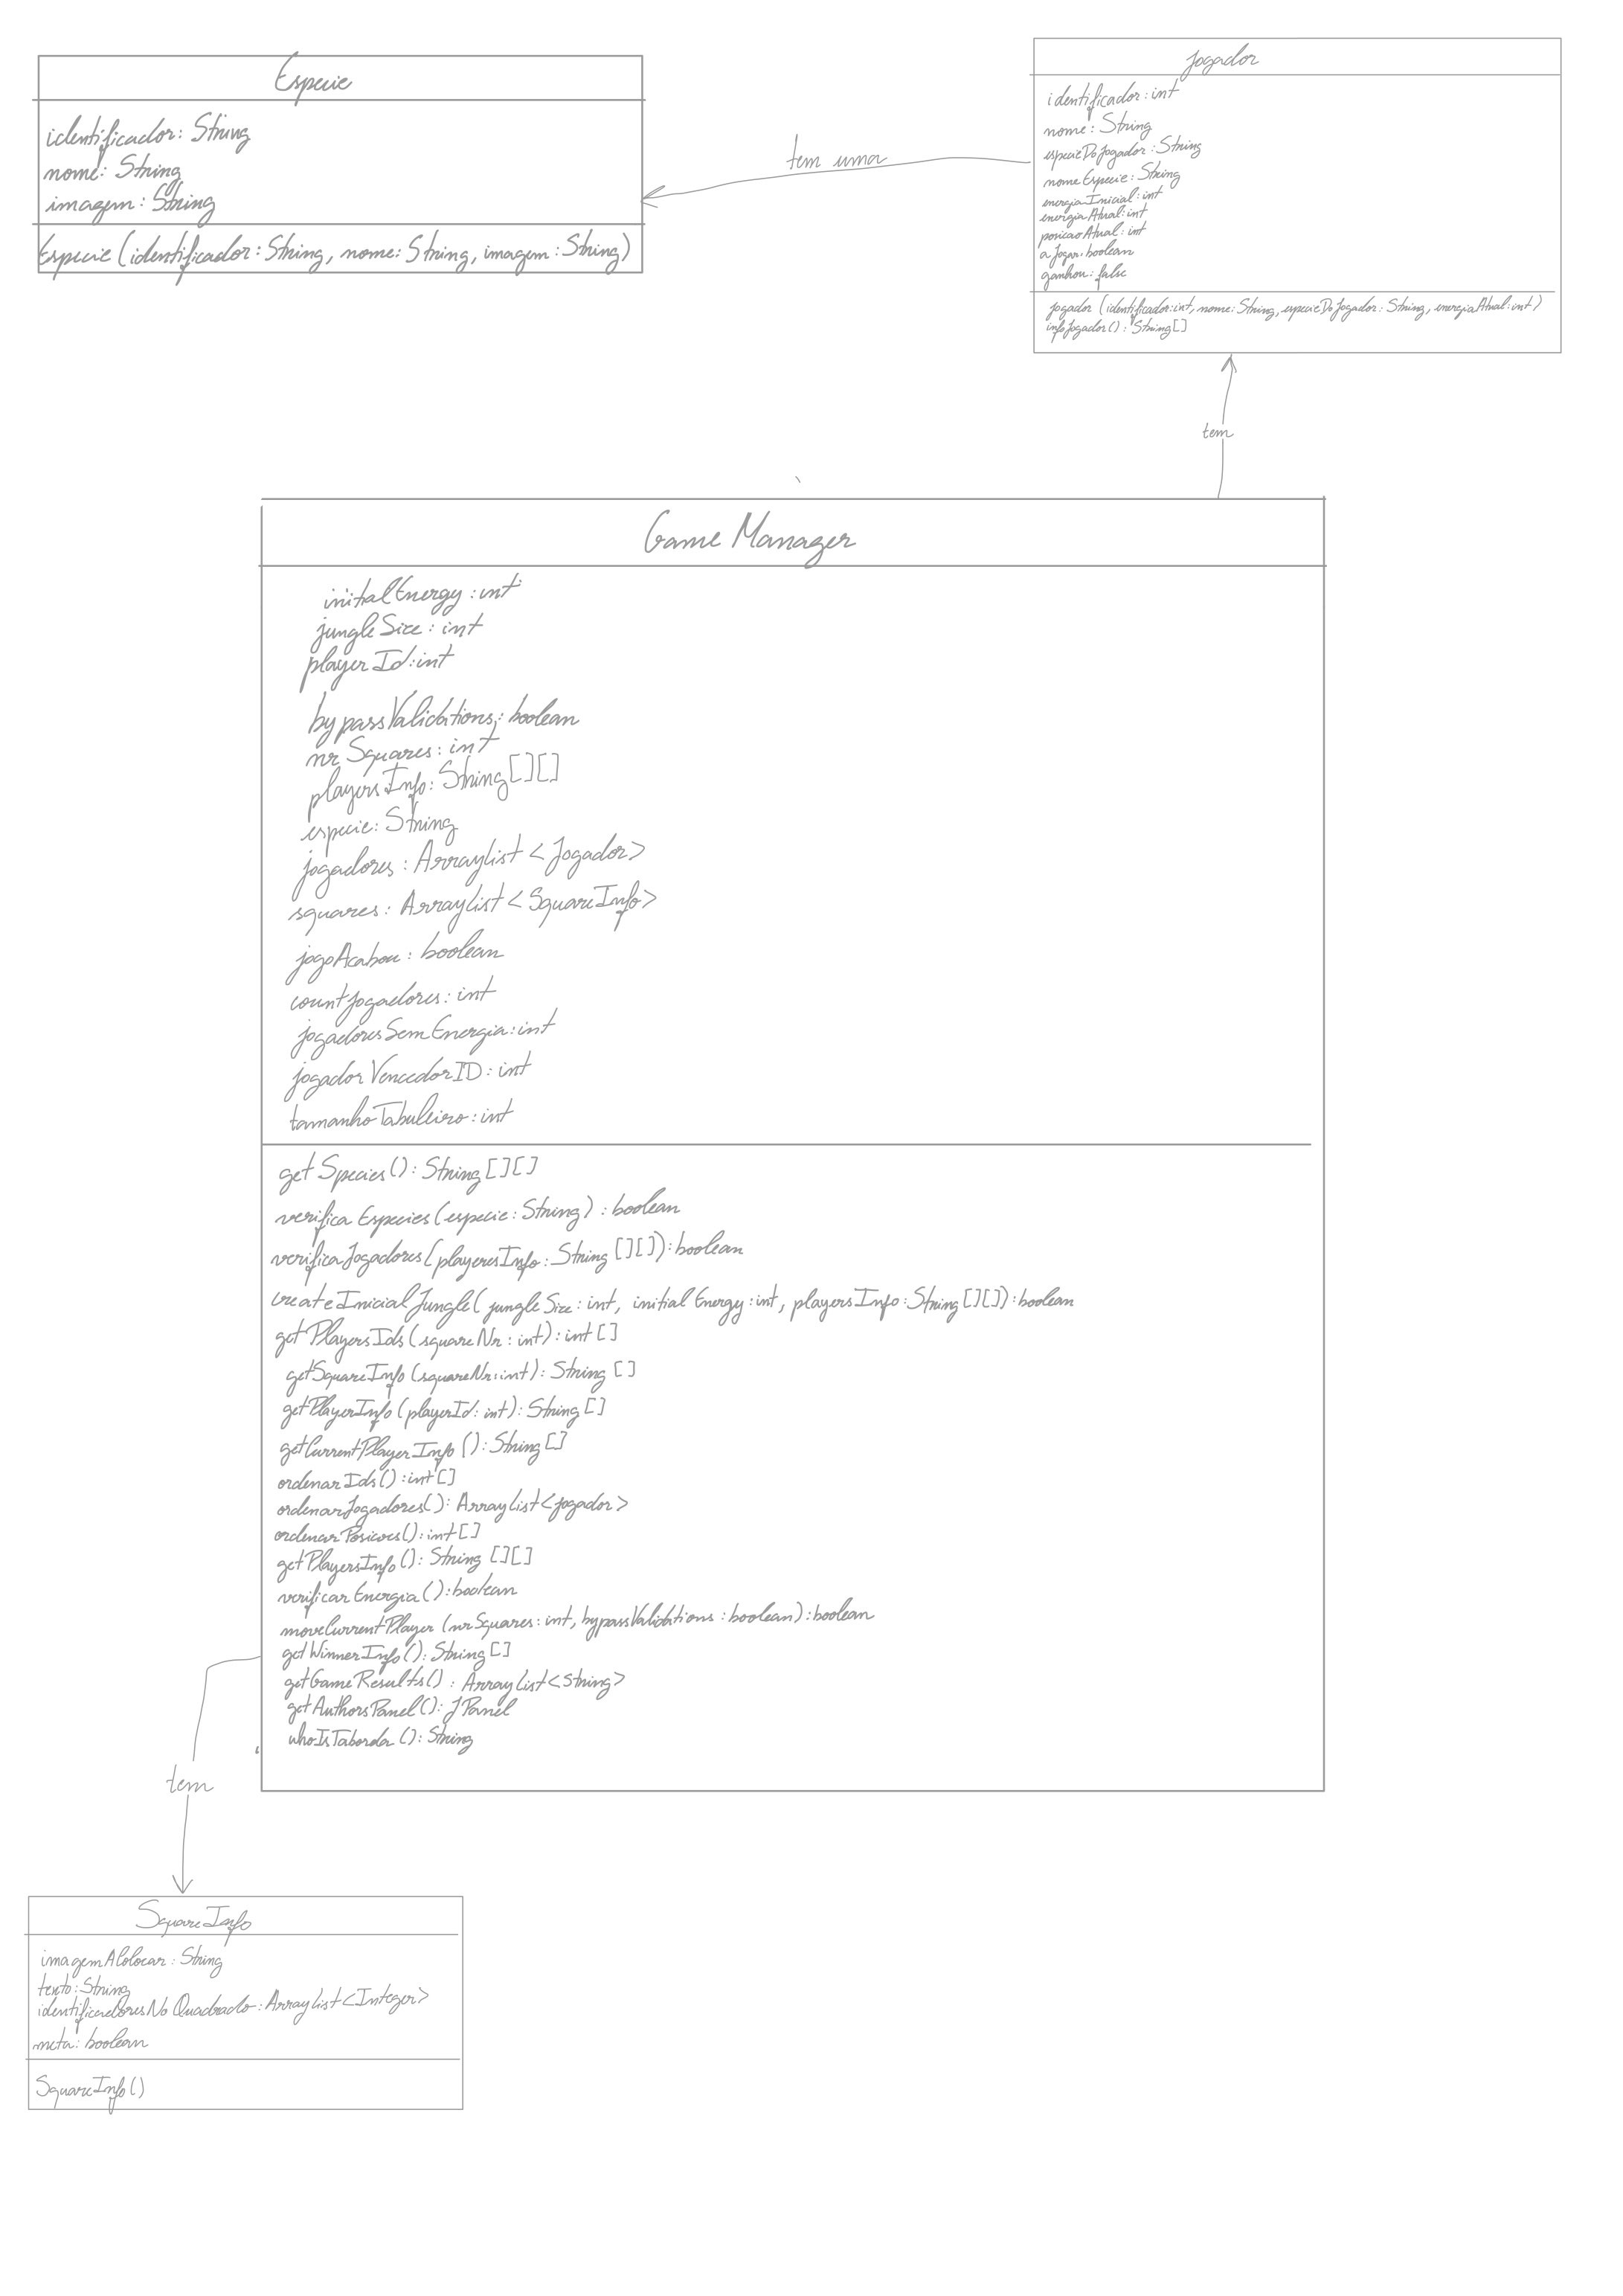 Especie
identificador: String
nome: String
imagem: String
Especie (identificador: String, nome: String, imagem: String)
tem uma
Jogador
identificador: int
nome: String
especieDoJogador: String
nomeEspecie: String
energiaInicial: int
energiaAtual: int
posicaoAtual: int
aJogar: boolean
ganhou: false
jogador (identificador: int, nome: String, especieDoJogador: String, energiaAtual: int)
infoJogador(): String[]
tem
Game Manager
initialEnergy: int
jungleSize: int
playerId: int
bypassValidations: boolean
nrSquares: int
playersInfo: String[][]
especie: String
jogadores: Arraylist<Jogador>
squares: Arraylist<SquareInfo>
jogoAcabou: boolean
countJogadores: int
jogadoresSemEnergia: int
jogadorVencedorID: int
tamanhoTabuleiro: int
getSpecies(): String[][]
verificaEspecies(especie: String): boolean
verificaJogadores(playeresInfo: String[][]): boolean
createInicialJungle(jungleSize: int, initialEnergy: int, playersInfo: String[][]): boolean
getPlayersIds(squareNr: int): int[]
getSquareInfo(squareNr: int): String[]
getPlayerInfo(playerId: int): String[]
getCurrentPlayerInfo(): String[]
ordenarIds(): int[]
ordenarJogadores(): Arraylist<jogador>
ordenarPosicoes(): int[]
getPlayersInfo(): String[][]
verificarEnergia(): boolean
moveCurrentPlayer(nrSquares: int, bypassValidations: boolean): boolean
getWinnerInfo(): String[]
getGameResults(): Arraylist<String>
getAuthorsPanel(): JPanel
whoIsTaborda(): String
tem
SquareInfo
imagemAColocar: String
texto: String
identificadoresNoQuadrado: Arraylist<Integer>
meta: boolean
SquareInfo()